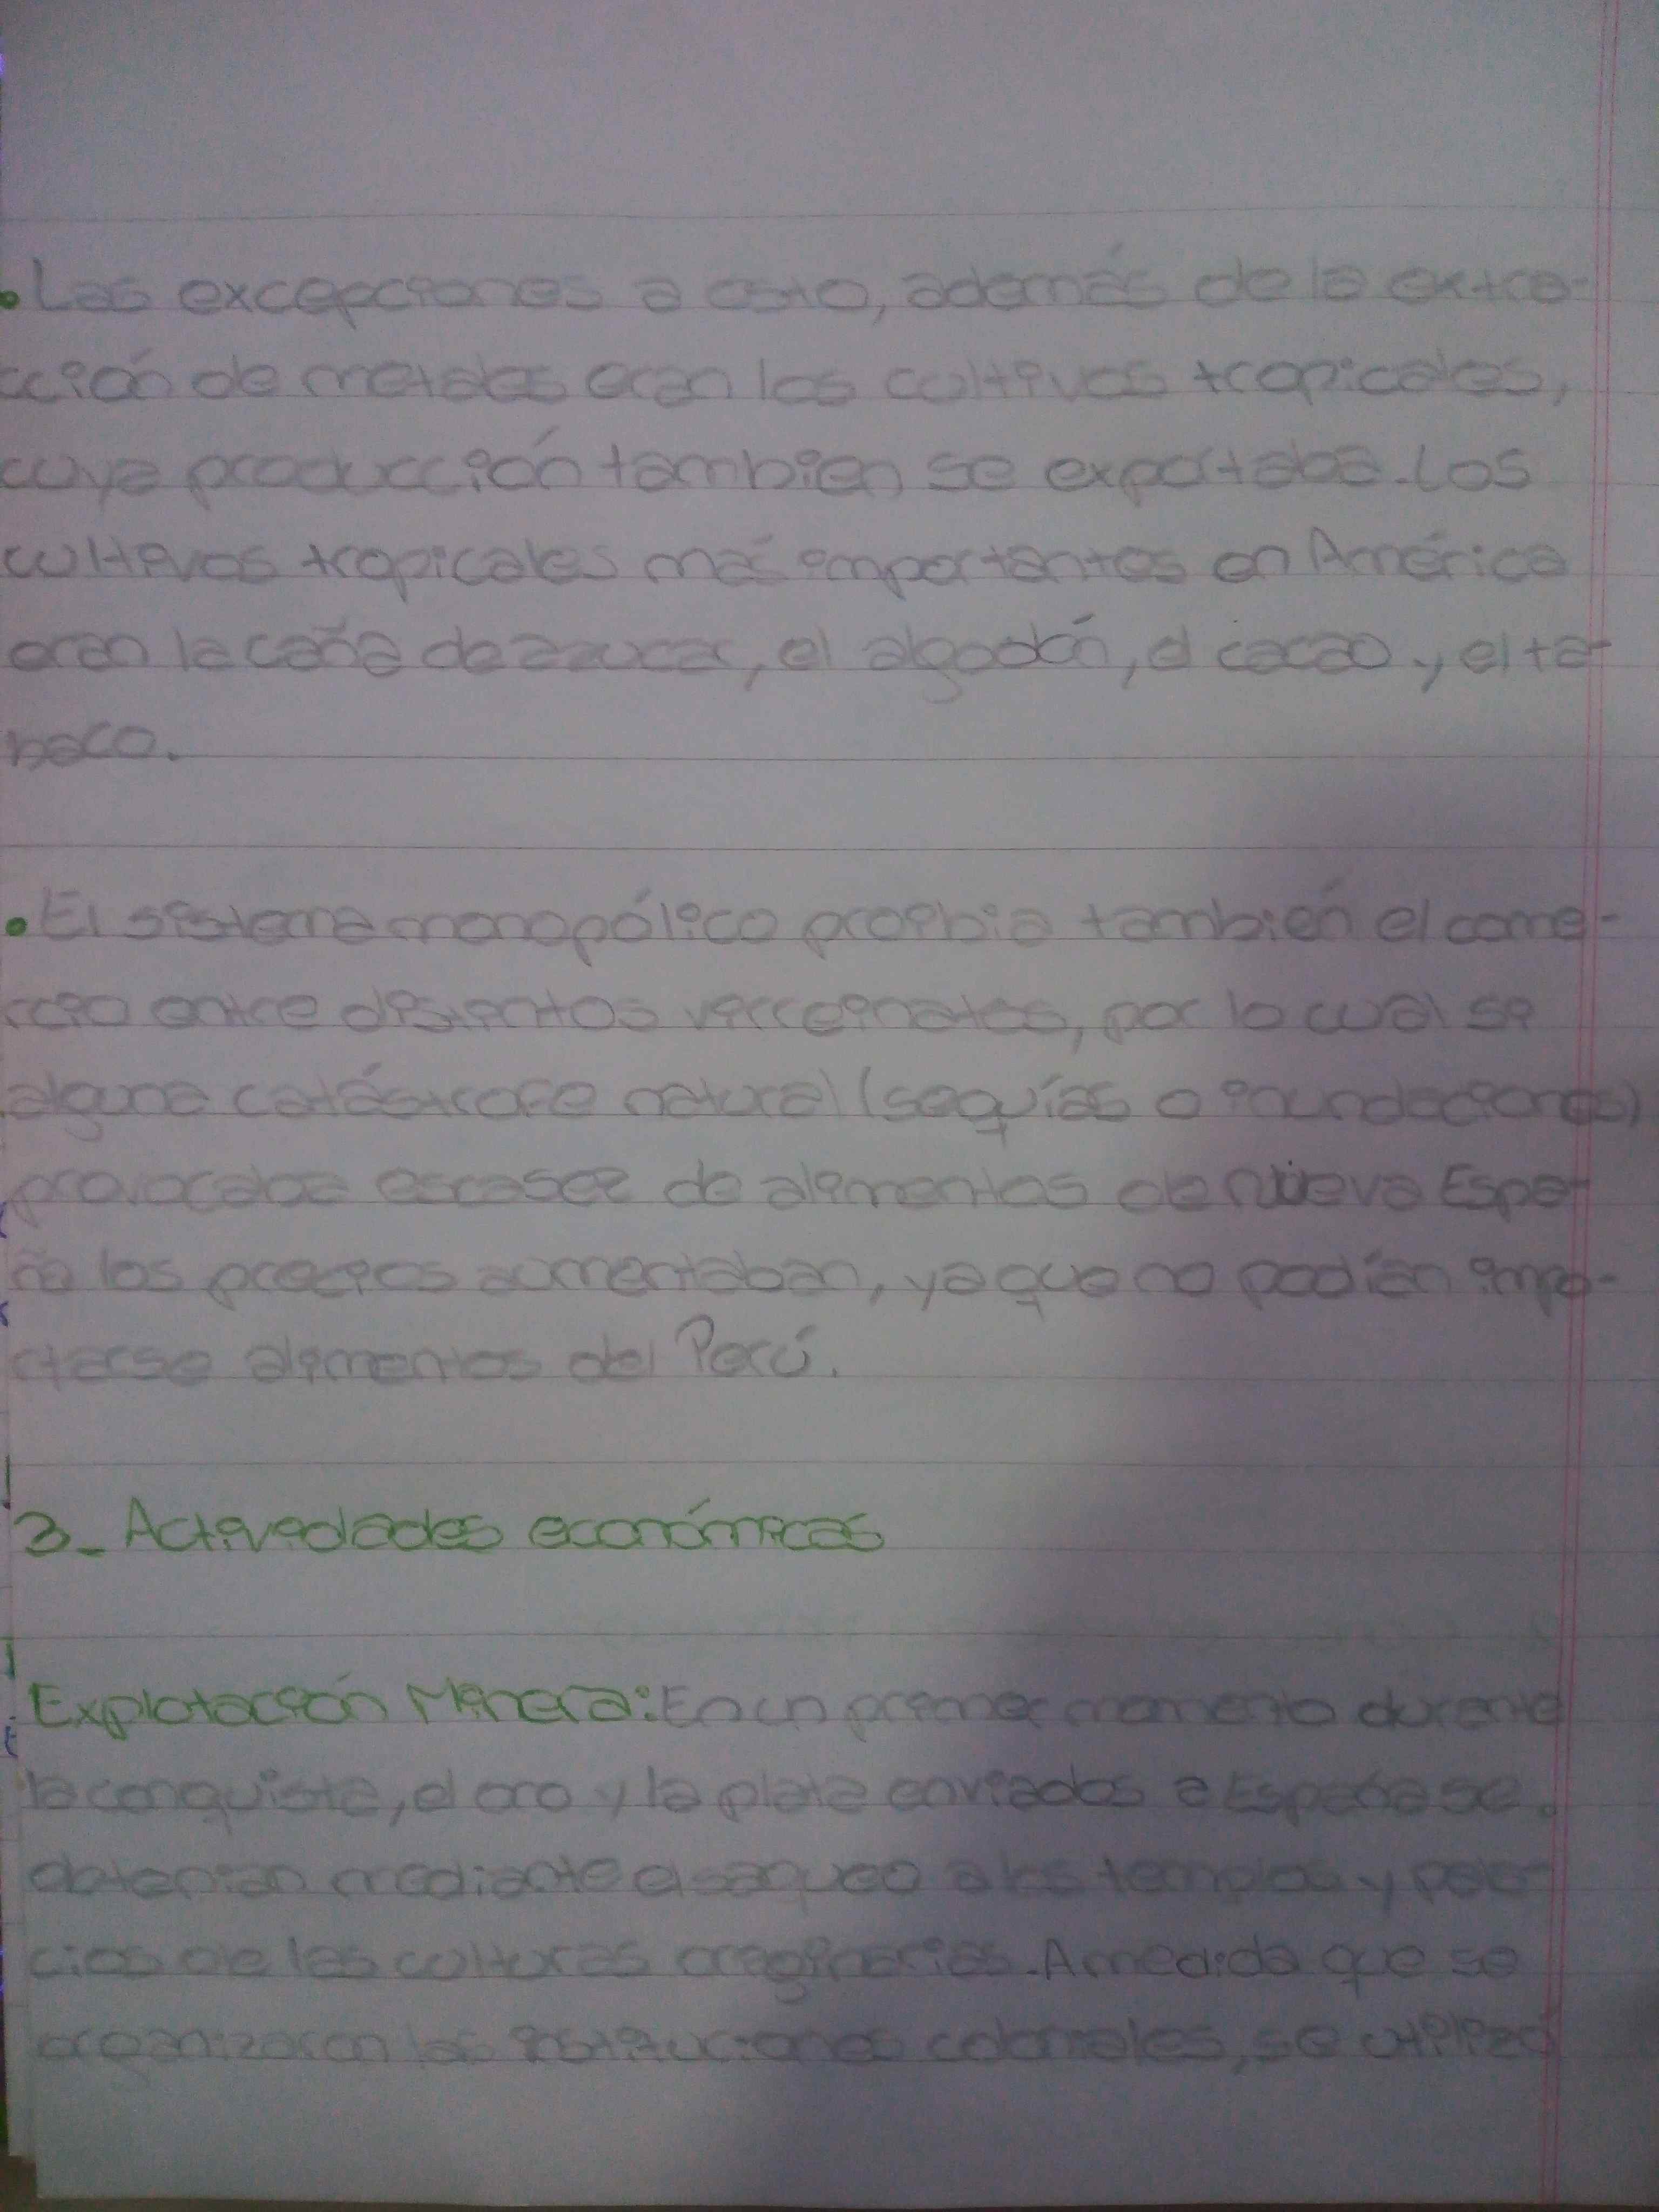 • Las excepciones a esto, además de la extra-
cción de metales eran los cultivos tropicales,
cuya producción tambien se exportaba. Los
cultivos tropicales más importantes en América
eran la caña de azucar, el algodón, el cacao y el ta-
baco.
• El sistema monopólico proibia también el come-
rcio entre distintos virreinatos, por lo cual si
alguna catástrofe natural (sequías o inundaciones)
provocaba escasez de alimentos de Nueva Espa-
ña los precios aumentaban, ya que no podían impo-
rtarse alimentos del Perú.
3_ Actividades económicas
Explotación Minera: En un primer momento durante
la conquista, el oro y la plata enviados a España se
obtenian mediante el saqueo a los templos y pala-
cios de las culturas originarias. A medida que se
organizaron las instituciones coloniales, se utilizó